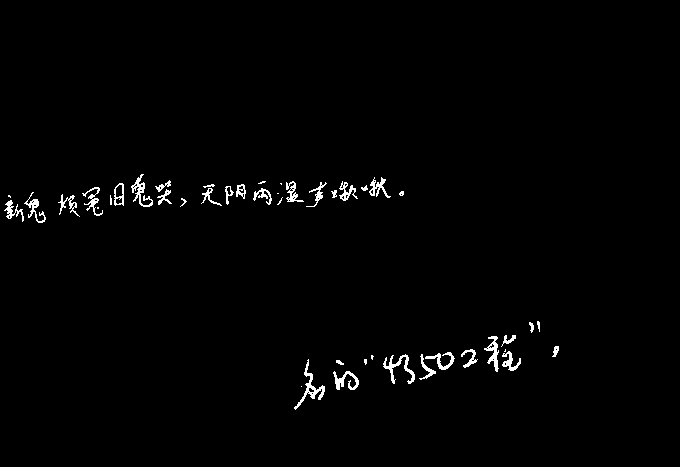 新鬼烦冤旧鬼哭，天阴雨湿声啾啾。
名的“4350工程”，